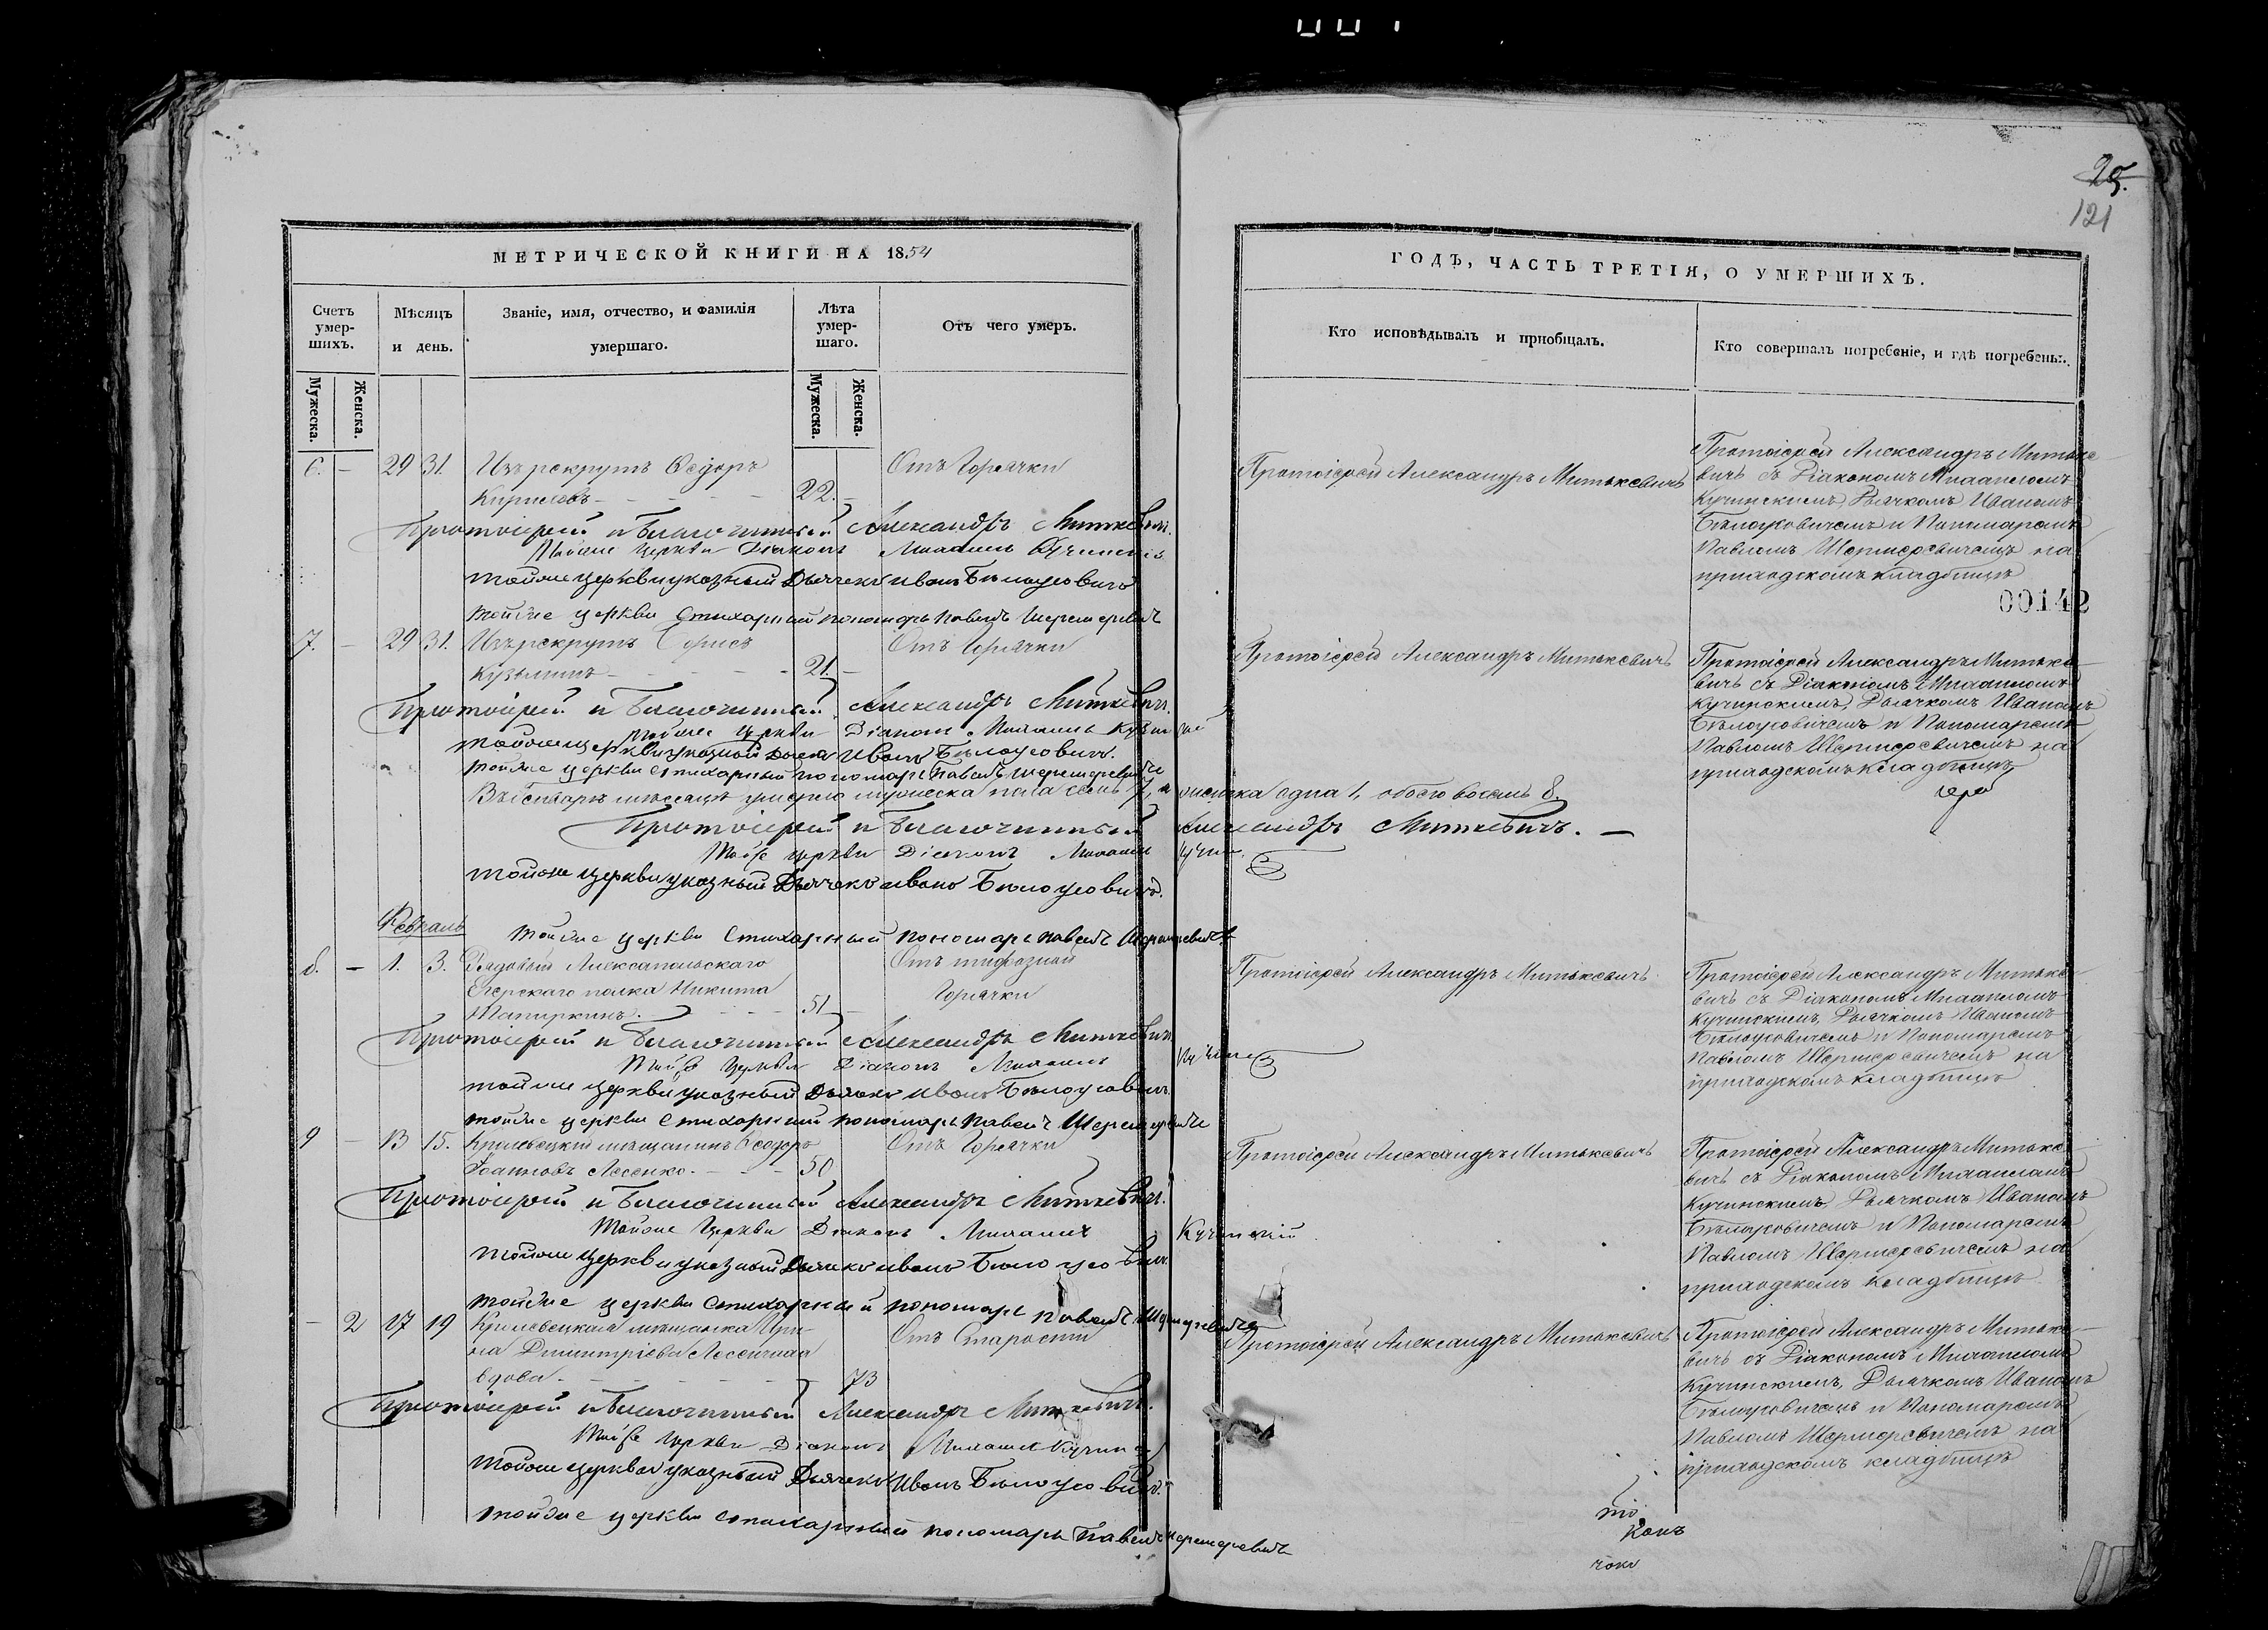 25.
121
МЕТРИЧЕСКОЙ КНИГИ НА 1854
Счетъ умер-шихъ.
Мѣсяцъ и день.
Званіе, имя, отчество, и фамилія умершаго.
Лѣта умер-шаго.
Отъ чего умеръ.
Мужеска.
Женска.
Мужеска.
Женска.
6. – 29 31. Изъ рекрутъ Ѳедоръ Отъ Горячки
22. –
Протоіерей и Благочинный Александръ Миткевичъ.
Тойже Церкви Діаконъ
тойже церкви указный Дьячекъ Иванъ Бѣлоусовичъ
тойже церкви Стихарный пономарь Павелъ Шереметевичъ
7. – 29 31. Изъ рекрутъ Борисъ Отъ Горячки
Кузьминъ 21. –
Протоіерей и Благочинный Александръ Миткевичъ.
тойже Церкви Діаконъ
тойже церкви указный Дьячекъ Иванъ Бѣлоусовичъ.
тойже церкви стихарный пономарь Павелъ
умерло мужеска пола семь 7, а женска одна 1, обоего восемь 8.
Протоіерей и Благочинный Александръ Миткевичъ. –
Тойже Церкви Діаконъ
тойже церкви указный Дьячекъ Иванъ Бѣлоусовичъ.
Февраль
тойже церкви Стихарный пономарь Павелъ
8. – 1. 3. Рядовый Алексапольскаго Отъ тифозной
Егерскаго полка Никита Горячки
51
Протоіерей и Благочинный Александръ Миткевичъ.
Тойже Церкви Діаконъ
тойже церкви указный Дьячекъ Иванъ Бѣлоусовичъ.
тойже церкви Стихарный пономарь Павелъ
9 – 13 15. Кролевецкій мѣщанинъ Ѳеодоръ Отъ Горячки
Іоанновъ Лесенко. 50
Протоіерей и Благочинный Александръ Миткевичъ.
Тойже Церкви Діаконъ Кучинскій
тойже церкви указный Дьячекъ Иванъ Бѣлоусовичъ.
тойже церкви стихарный пономарь Павелъ
– 2 17 19 Кролевецкая мѣщанка Ири- Отъ Старости
на Димитріева
вдова. 73
Протоіерей и Благочинный Александръ Миткевичъ.
Тойже Церкви Діаконъ
тойже церкви указный Дьячекъ Иванъ Бѣлоусовичъ.
тойже церкви стихарный пономарь Павелъ
ГОДЪ, ЧАСТЬ ТРЕТІЯ, О УМЕРШИХЪ.
Кто исповѣдывалъ и пріобщалъ.
Кто совершалъ погребеніе, и гдѣ погребены.
Протоіерей Александръ Митькевичъ
Протоіерей Александръ Митьке-
вичъ съ Діакономъ
Кучинскимъ, Дьячкомъ Иваномъ
Бѣлоусовичемъ и Пономаремъ
Павломъ на
приходскомъ кладбищѣ
00142
Протоіерей Александръ Митькевичъ
Протоіерей Александръ Митьке-
вичъ съ Діакономъ
Кучинскимъ, Дьячкомъ Иваномъ
Бѣлоусовичемъ и Пономаремъ
Павломъ на
приходскомъ кладбищѣ
Протоіерей Александръ Митькевичъ
Протоіерей Александръ Митьке-
вичъ съ Діакономъ
Кучинскимъ, Дьячкомъ Иваномъ
Бѣлоусовичемъ и Пономаремъ
Павломъ на
приходскомъ кладбищѣ
Протоіерей Александръ Митькевичъ
Протоіерей Александръ Митьке-
вичъ съ Діакономъ
Кучинскимъ, Дьячкомъ Иваномъ
Бѣлоусовичемъ и Пономаремъ
Павломъ на
приходскомъ кладбищѣ
Протоіерей Александръ Митькевичъ
Протоіерей Александръ Митьке-
вичъ съ Діакономъ
Кучинскимъ, Дьячкомъ Иваномъ
Бѣлоусовичемъ и Пономаремъ
Павломъ на
приходскомъ кладбищѣ